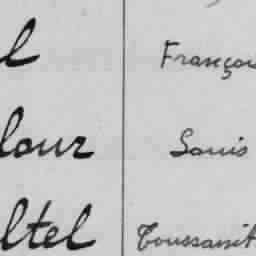 l Françoi
lour Louis
ltel Toussaint